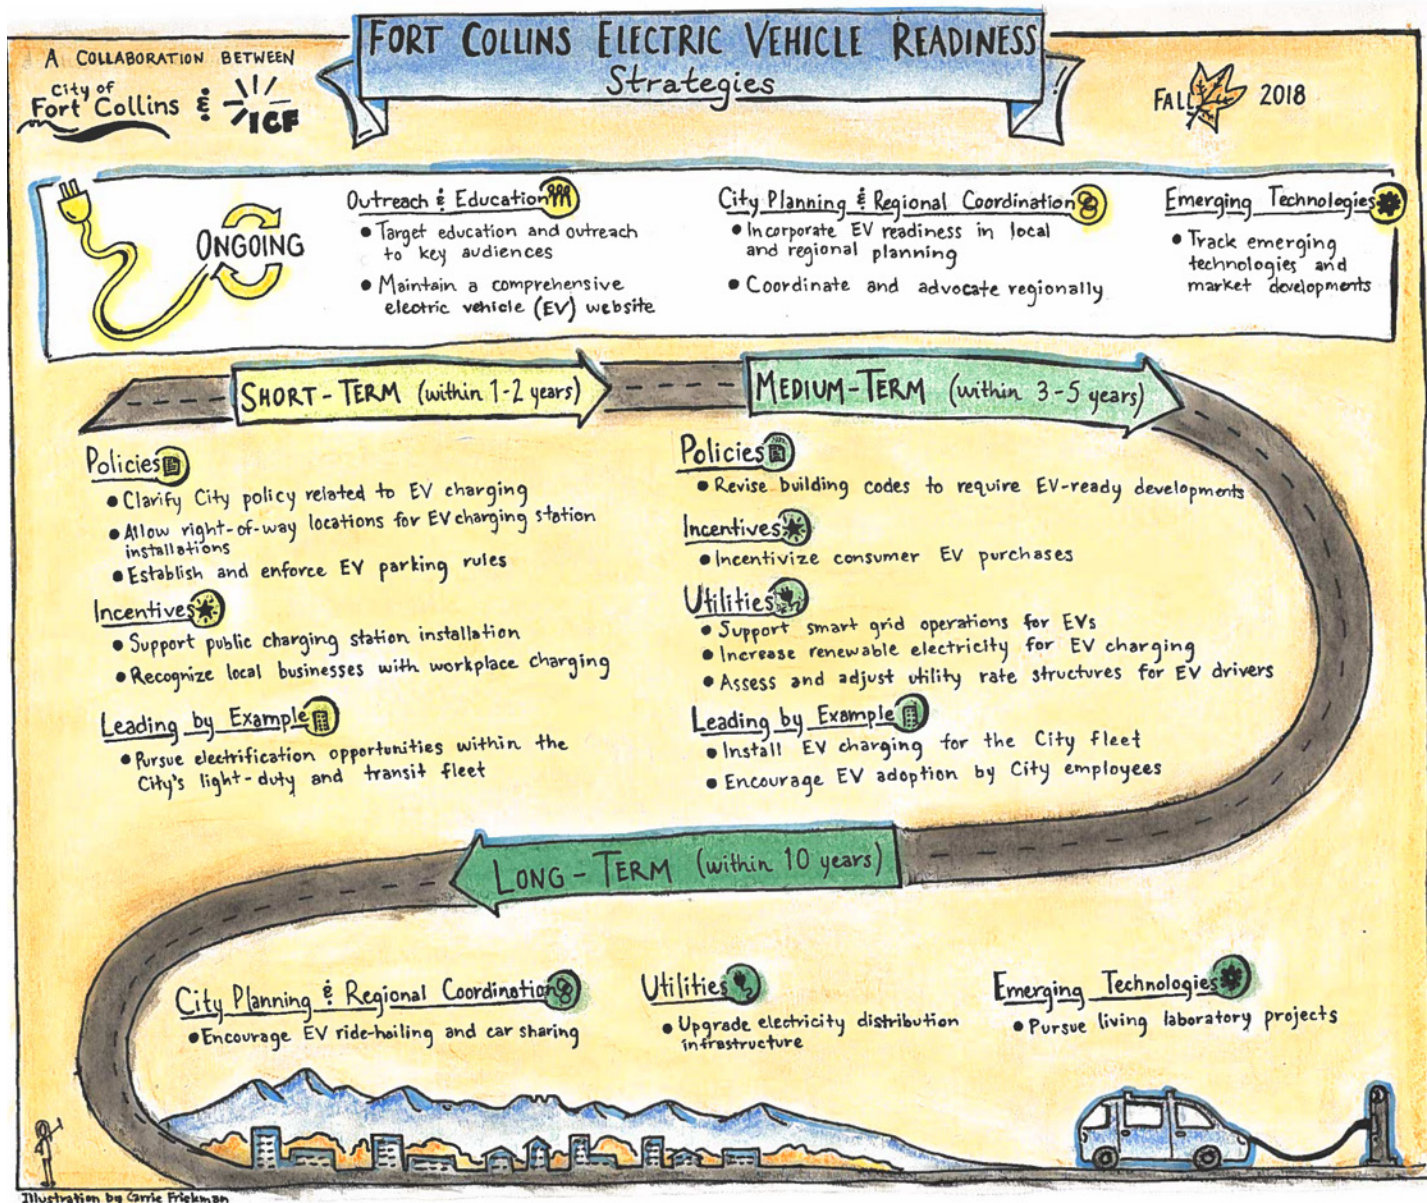 FORT COLLINS ELECTRIC VEHICLE READINESS
Strategies
A COLLABORATION BETWEEN
City of
Fort Collins & ICF
FALL 2018
ONGOING
Outreach & Education
• Target education and outreach
to key audiences
• Maintain a comprehensive
electric vehicle (EV) website
City Planning & Regional Coordination
• Incorporate EV readiness in local
and regional planning
• Coordinate and advocate regionally
Emerging Technologies
• Track emerging
technologies and
market developments
SHORT-TERM (within 1-2 years)
Policies
• Clarify City policy related to EV charging
• Allow right-of-way locations for EV charging station
installations
• Establish and enforce EV parking rules
Incentives
• Support public charging station installation
• Recognize local businesses with workplace charging
Leading by Example
• Pursue electrification opportunities within the
City's light-duty and transit fleet
MEDIUM-TERM (within 3-5 years)
Policies
• Revise building codes to require EV-ready developments
Incentives
• Incentivize consumer EV purchases
Utilities
• Support smart grid operations for EVs
• Increase renewable electricity for EV charging
• Assess and adjust utility rate structures for EV drivers
Leading by Example
• Install EV charging for the City fleet
• Encourage EV adoption by City employees
LONG-TERM (within 10 years)
City Planning & Regional Coordination
• Encourage EV ride-hailing and car sharing
Utilities
• Upgrade electricity distribution
infrastructure
Emerging Technologies
• Pursue living laboratory projects
Illustration by Carrie Frickman